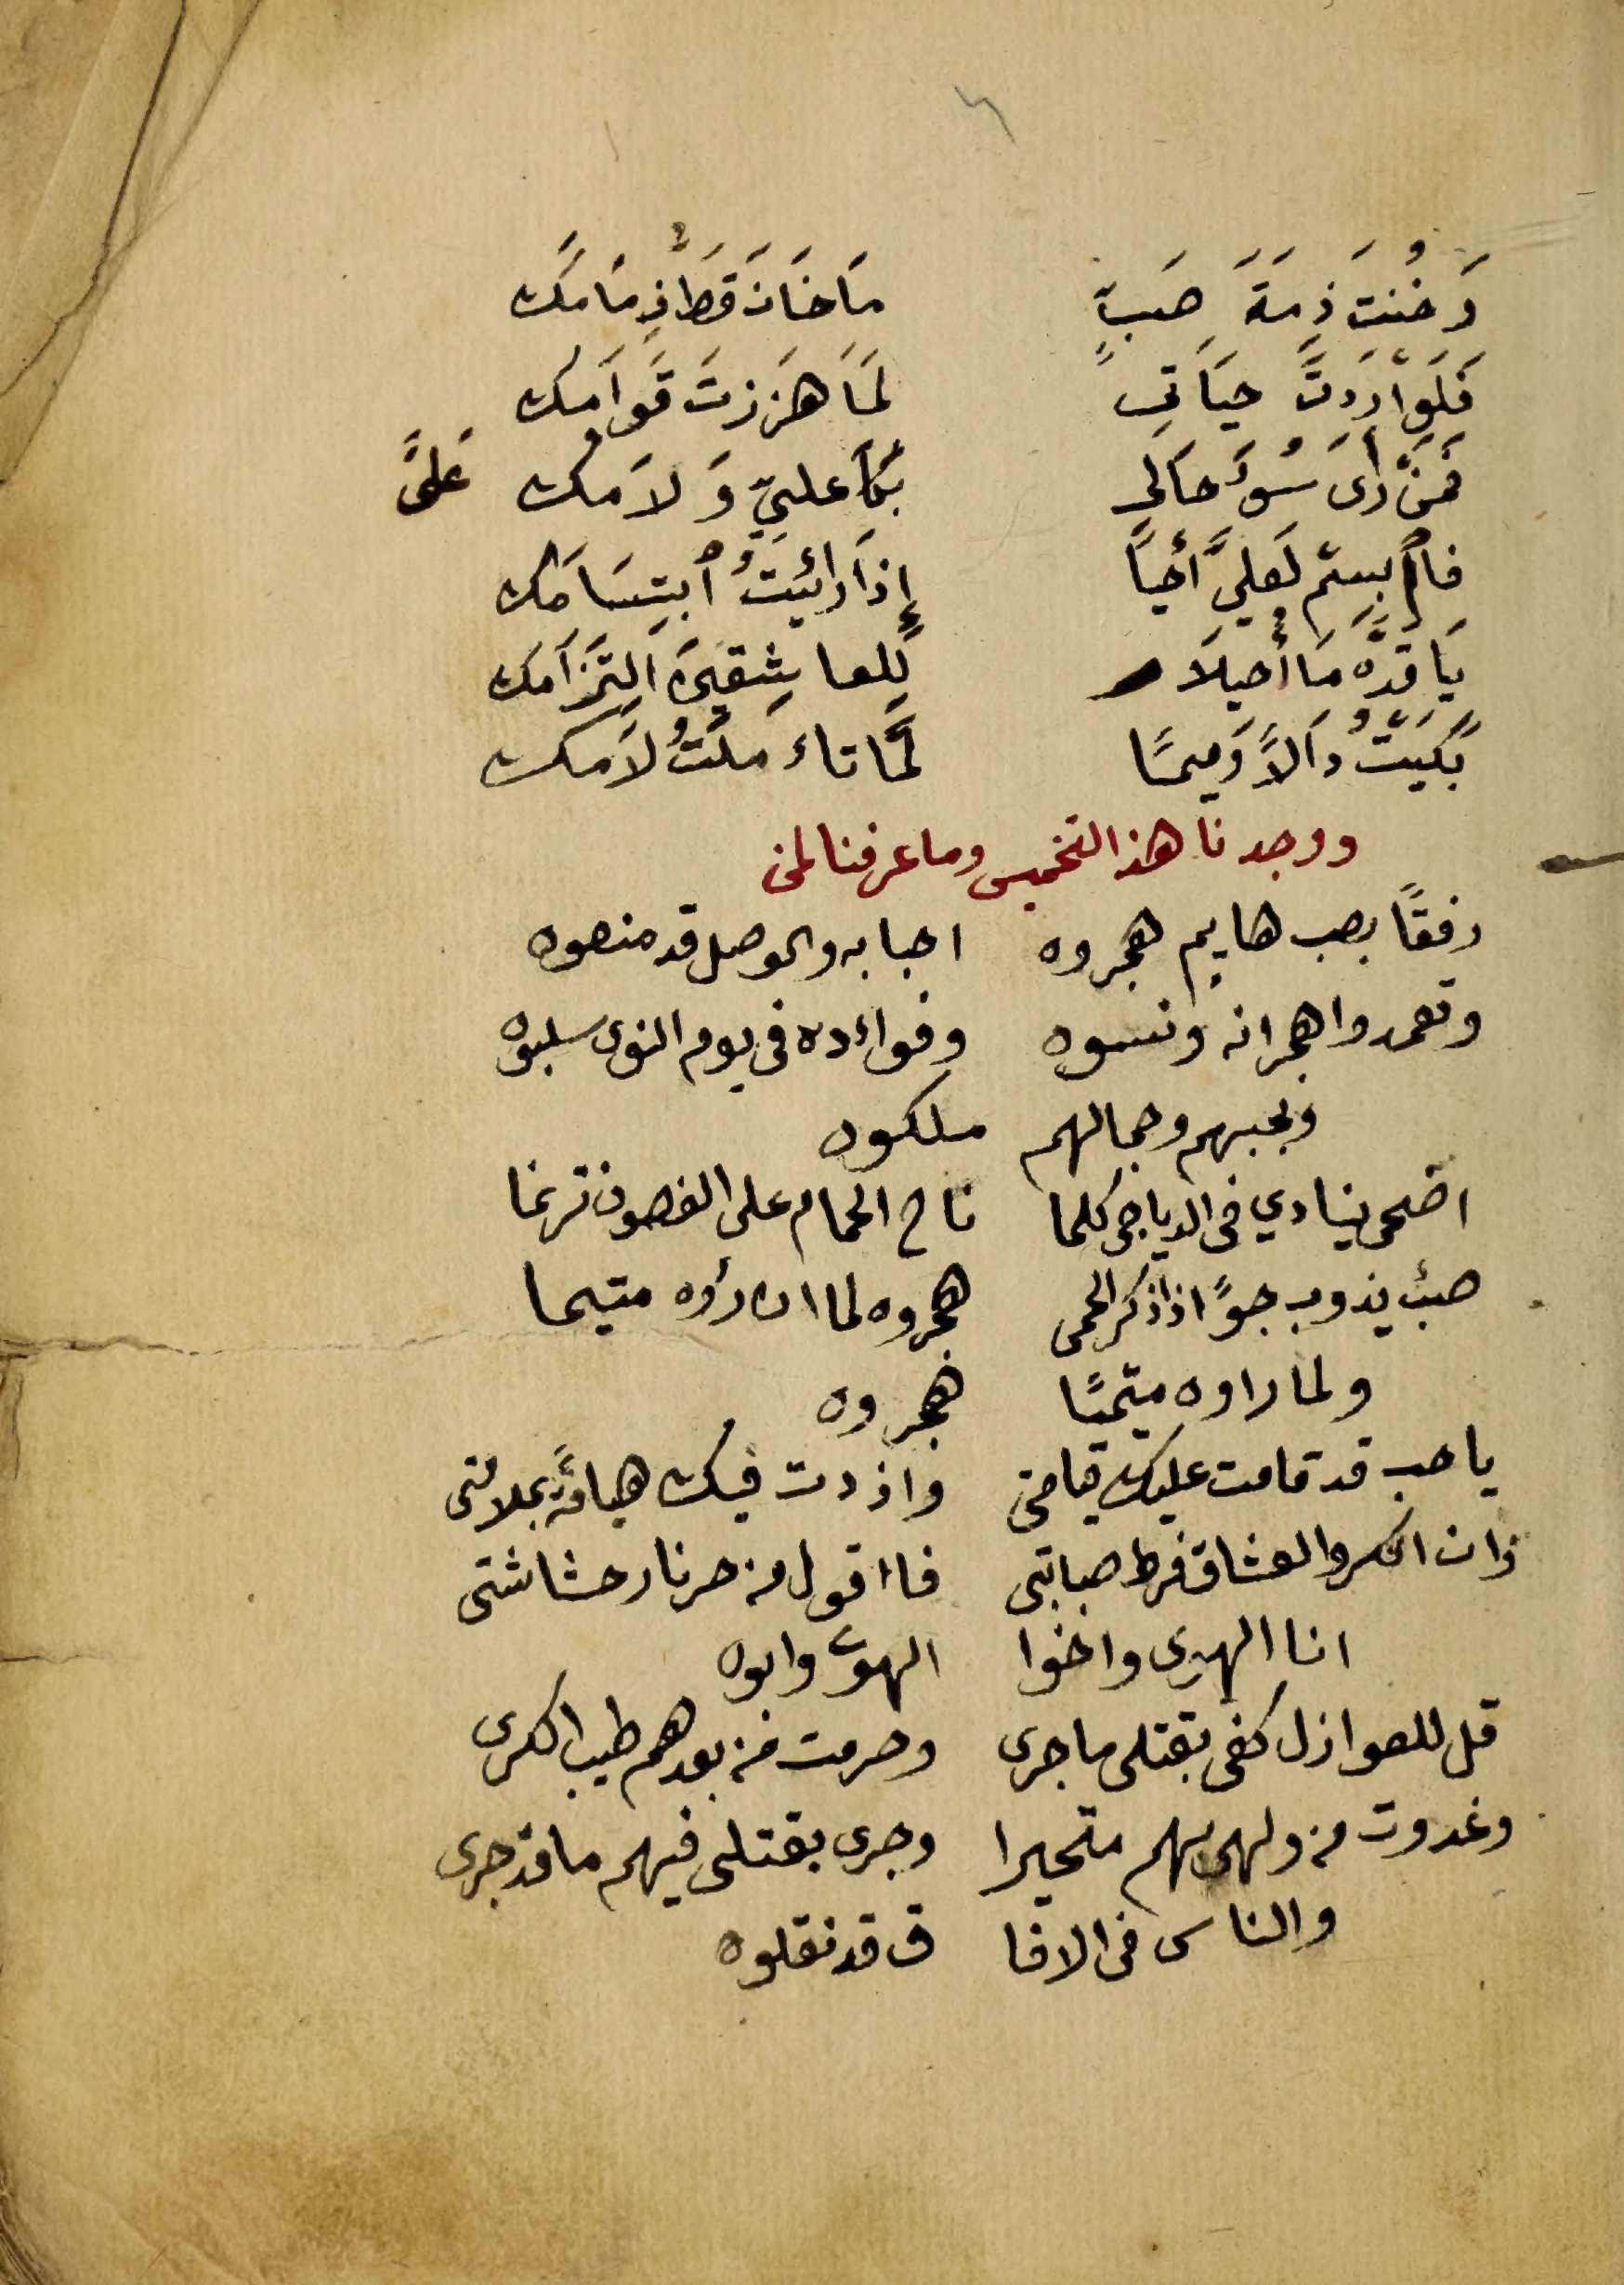 وَخُنتَ ذِمَةَ صَبٍّ مَا خَانَ قَطُّ ذِمَامَك
فَلَوْ اَرَدتَّ حَيَاتِي لَمَا هَزَزتَ قَوَامَك
فَمَن رَأى سُوءَ حَالِي بَكَا عليّ وَلاَمَك عَلىَّ
فاابسِتم لَعَلِيَّ أَحيَا إِذَا رَائَيتُ ٱبتِسَامَك
يَا قَدَّه مَا أُحيلاَ لِلعاشِقِينَ اَلتِزَامَك
بَكَيتُ دَالاً وَمِيمًا لمَّا تاءَ مَلتُ لاَمَك
ووجدنا هذا التخميس وما عرفنا لمن
رفقًا بصب هايم هجروه احبابه والوصل قد منعوه
وتعمدوا هجرانه ونسوه وفواءده فى يوم النوى سلبوه
وبحبهم وجمالهم ملكوه
اضحى ينادي فى الدياجى كلما ناح الحمام على الغصون ترنما
صبٌ يذوب جوًا اذا ذكر الحمى هجروه لما ان رأوه متيما
ولما راوه متيمًا هجروه
يا حب قد قامت عليك قيامتى وازددت فيك هيامةً بملامتى
وان انكروا العشاق فرط صبابتى فاا قول من حر نار حشاشتى
انا الهوى واخوا الهوى وابوه
قل للعوازل كفى بقتلى ما جرى وحرمت من بعدهم طيب الكرى
وغدوت من ولهى بهم متحيرا وجرى بقتلى فيهم ما قد جرى
والناس فى الافا ق قد نقلوه